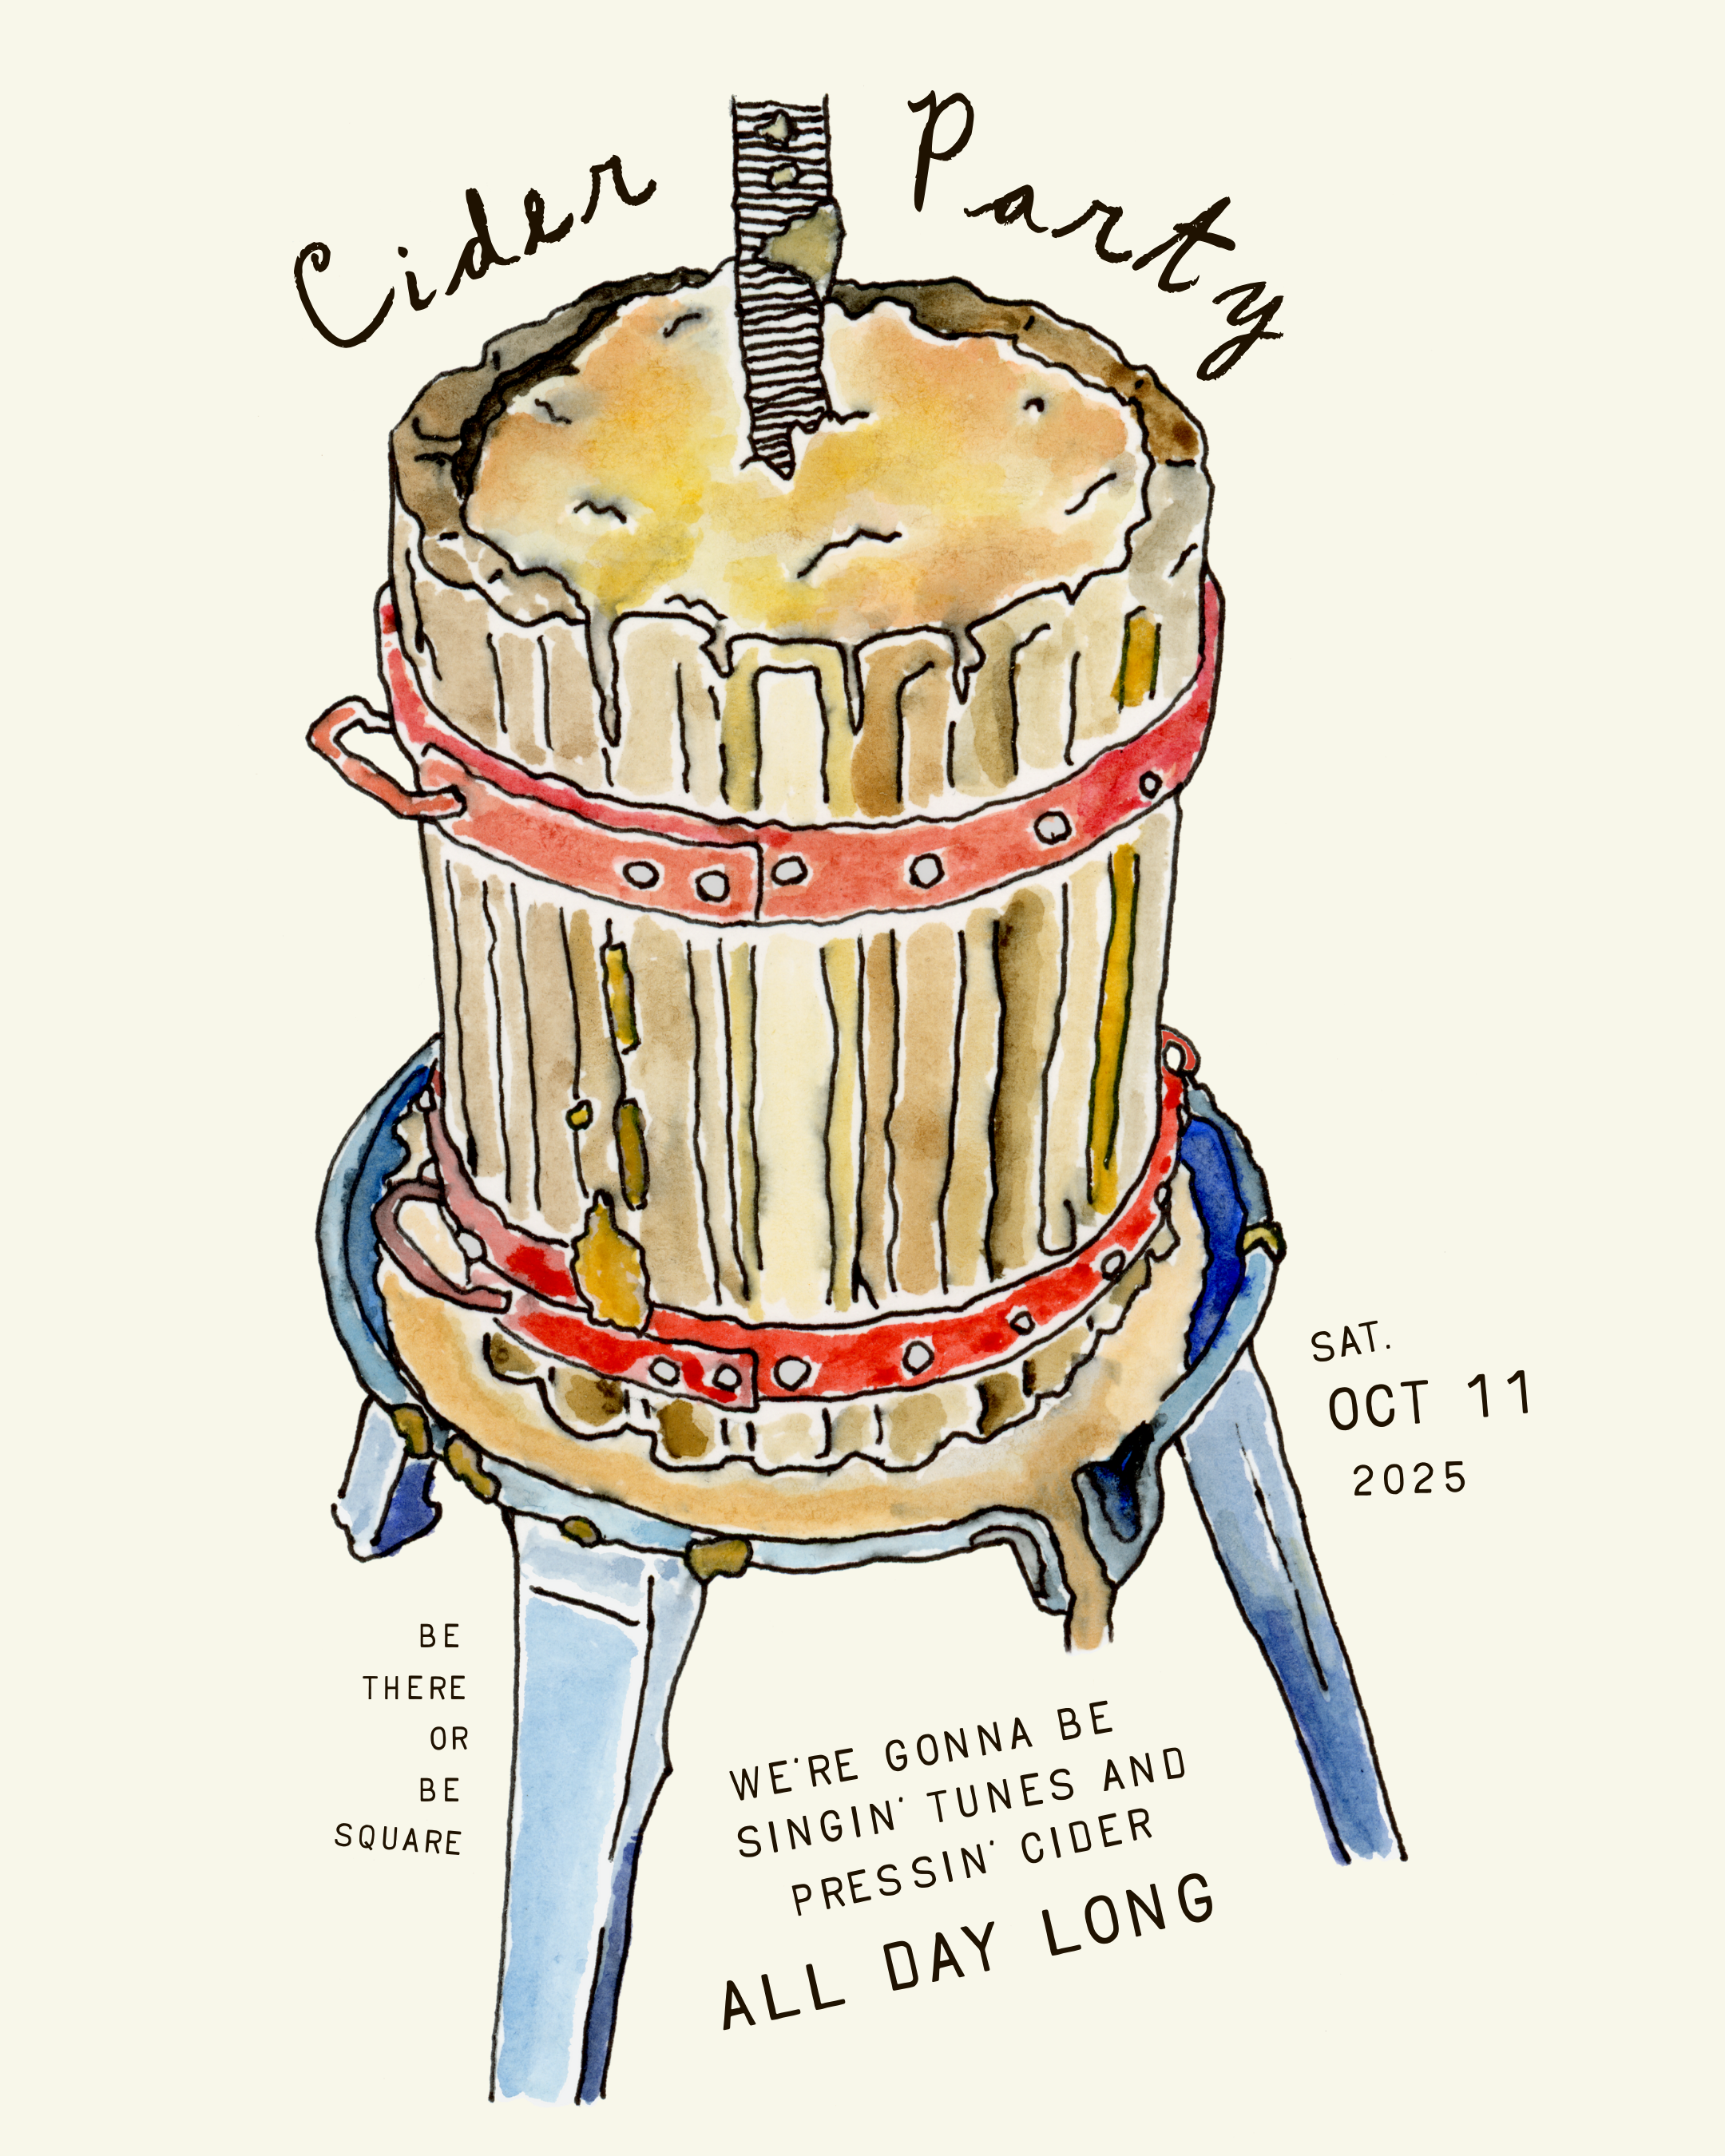 Cider Party
SAT.
OCT 11
2025
BE
THERE
OR
BE
SQUARE
WE'RE GONNA BE
SINGIN' TUNES AND
PRESSIN' CIDER
ALL DAY LONG